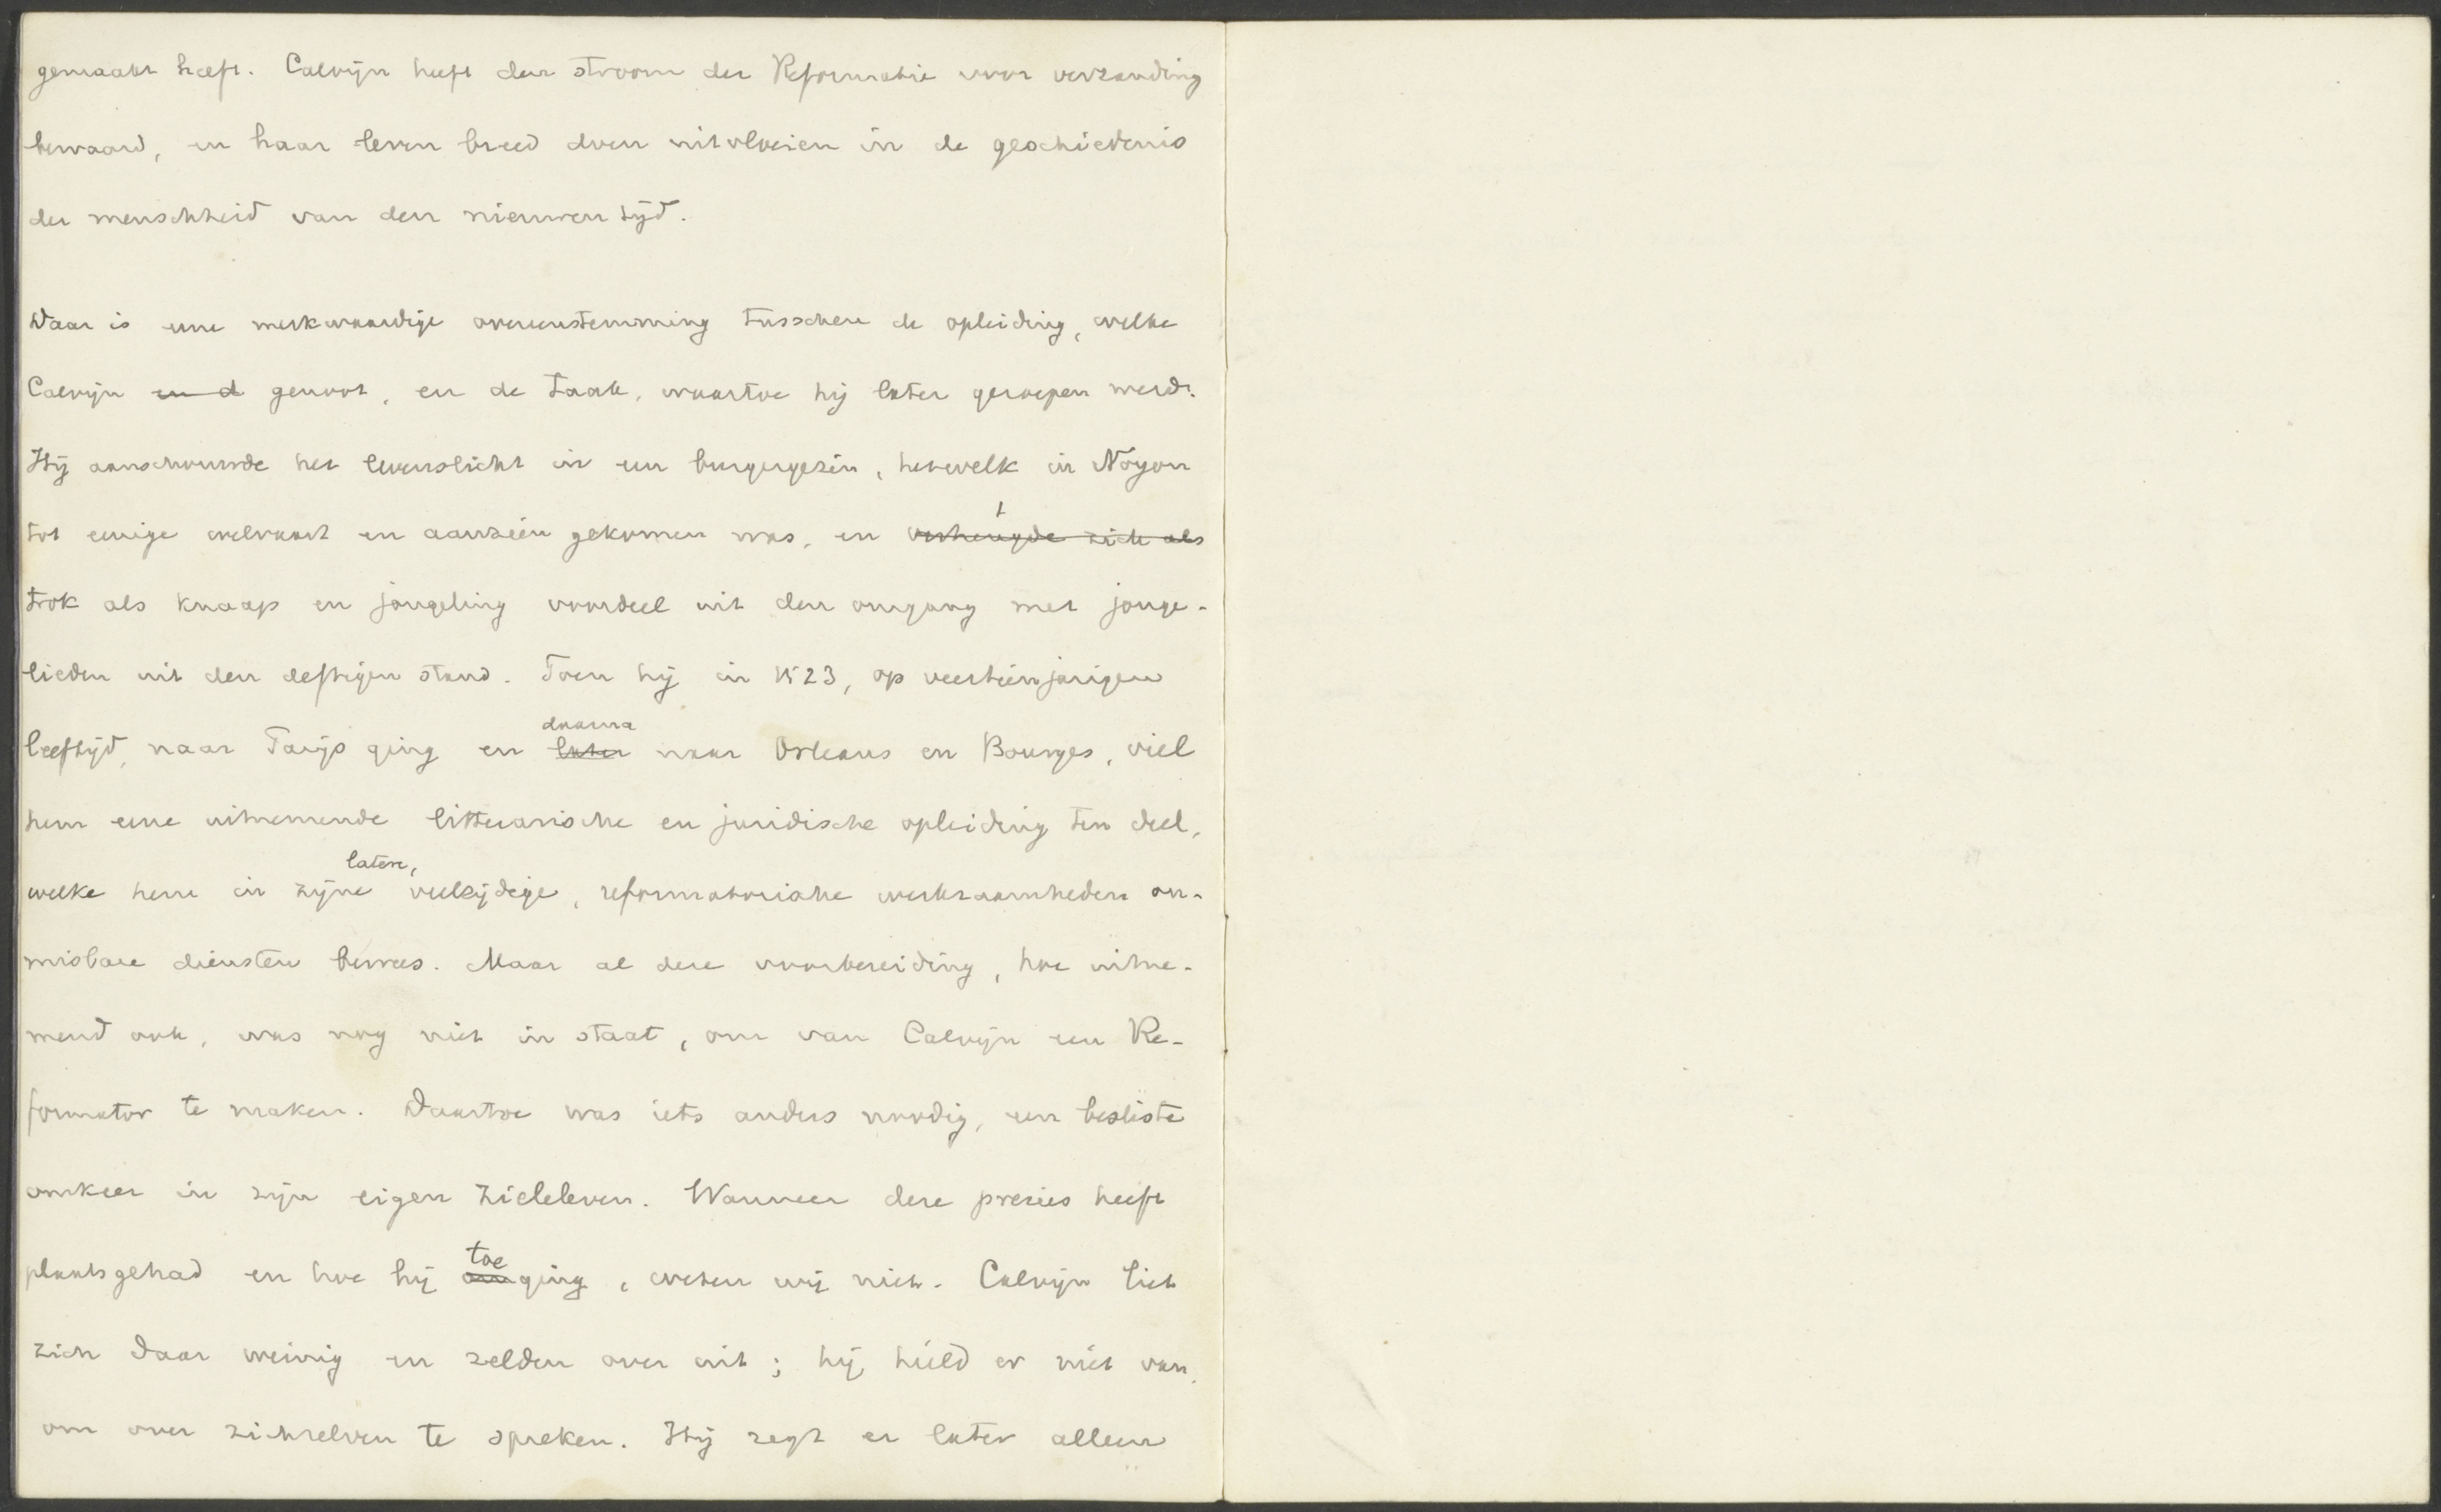 gemaakt heeft. Calvijn heeft den stroom der Reformatie voor verzanding
bewaard, en haar leven breed doen uitvloeien in de geschiedenis
der menschheid van den nieuwen tijd.
Daar is eene merkwaardige overeenstemming tusschen de opleiding, welke
Calvijn en d genoot, en de taak, waartoe hij later geroepen werd.
Hij aanschouwde het levenslicht in een burgergezin, hetwelk in Noyon
tot eenige welvaart en aanzien gekomen was, en verheugde zich als
trok als knaap en jongeling voordeel uit den omgang met jonge-
lieden uit den deftigen stand. Toen hij in 1523, op veertienjarigen
daarna
leeftijd, naar Parijs ging en later naar Orleans en Bourges, viel
hem eene uitnemende litterarische en juridische opleiding ten deel,
latere,
welke hem in zijne veelzijdige, reformatorische werkzaamheden on-
misbare diensten bewees. Maar al deze voorbereiding, hoe uitne-
mend ook, was nog niet in staat, om van Calvijn een Re-
formator te maken. Daartoe was iets anders noodig, een besliste
omkeer in zijn eigen zieleleven. Wanneer deze precies heeft
toe
plaatsgehad en hoe hij omging, weten wij niet. Calvijn liet
zich daar weinig en zelden over uit; hij hield er niet van,
om over zichzelven te spreken. Hij zegt er later alleen